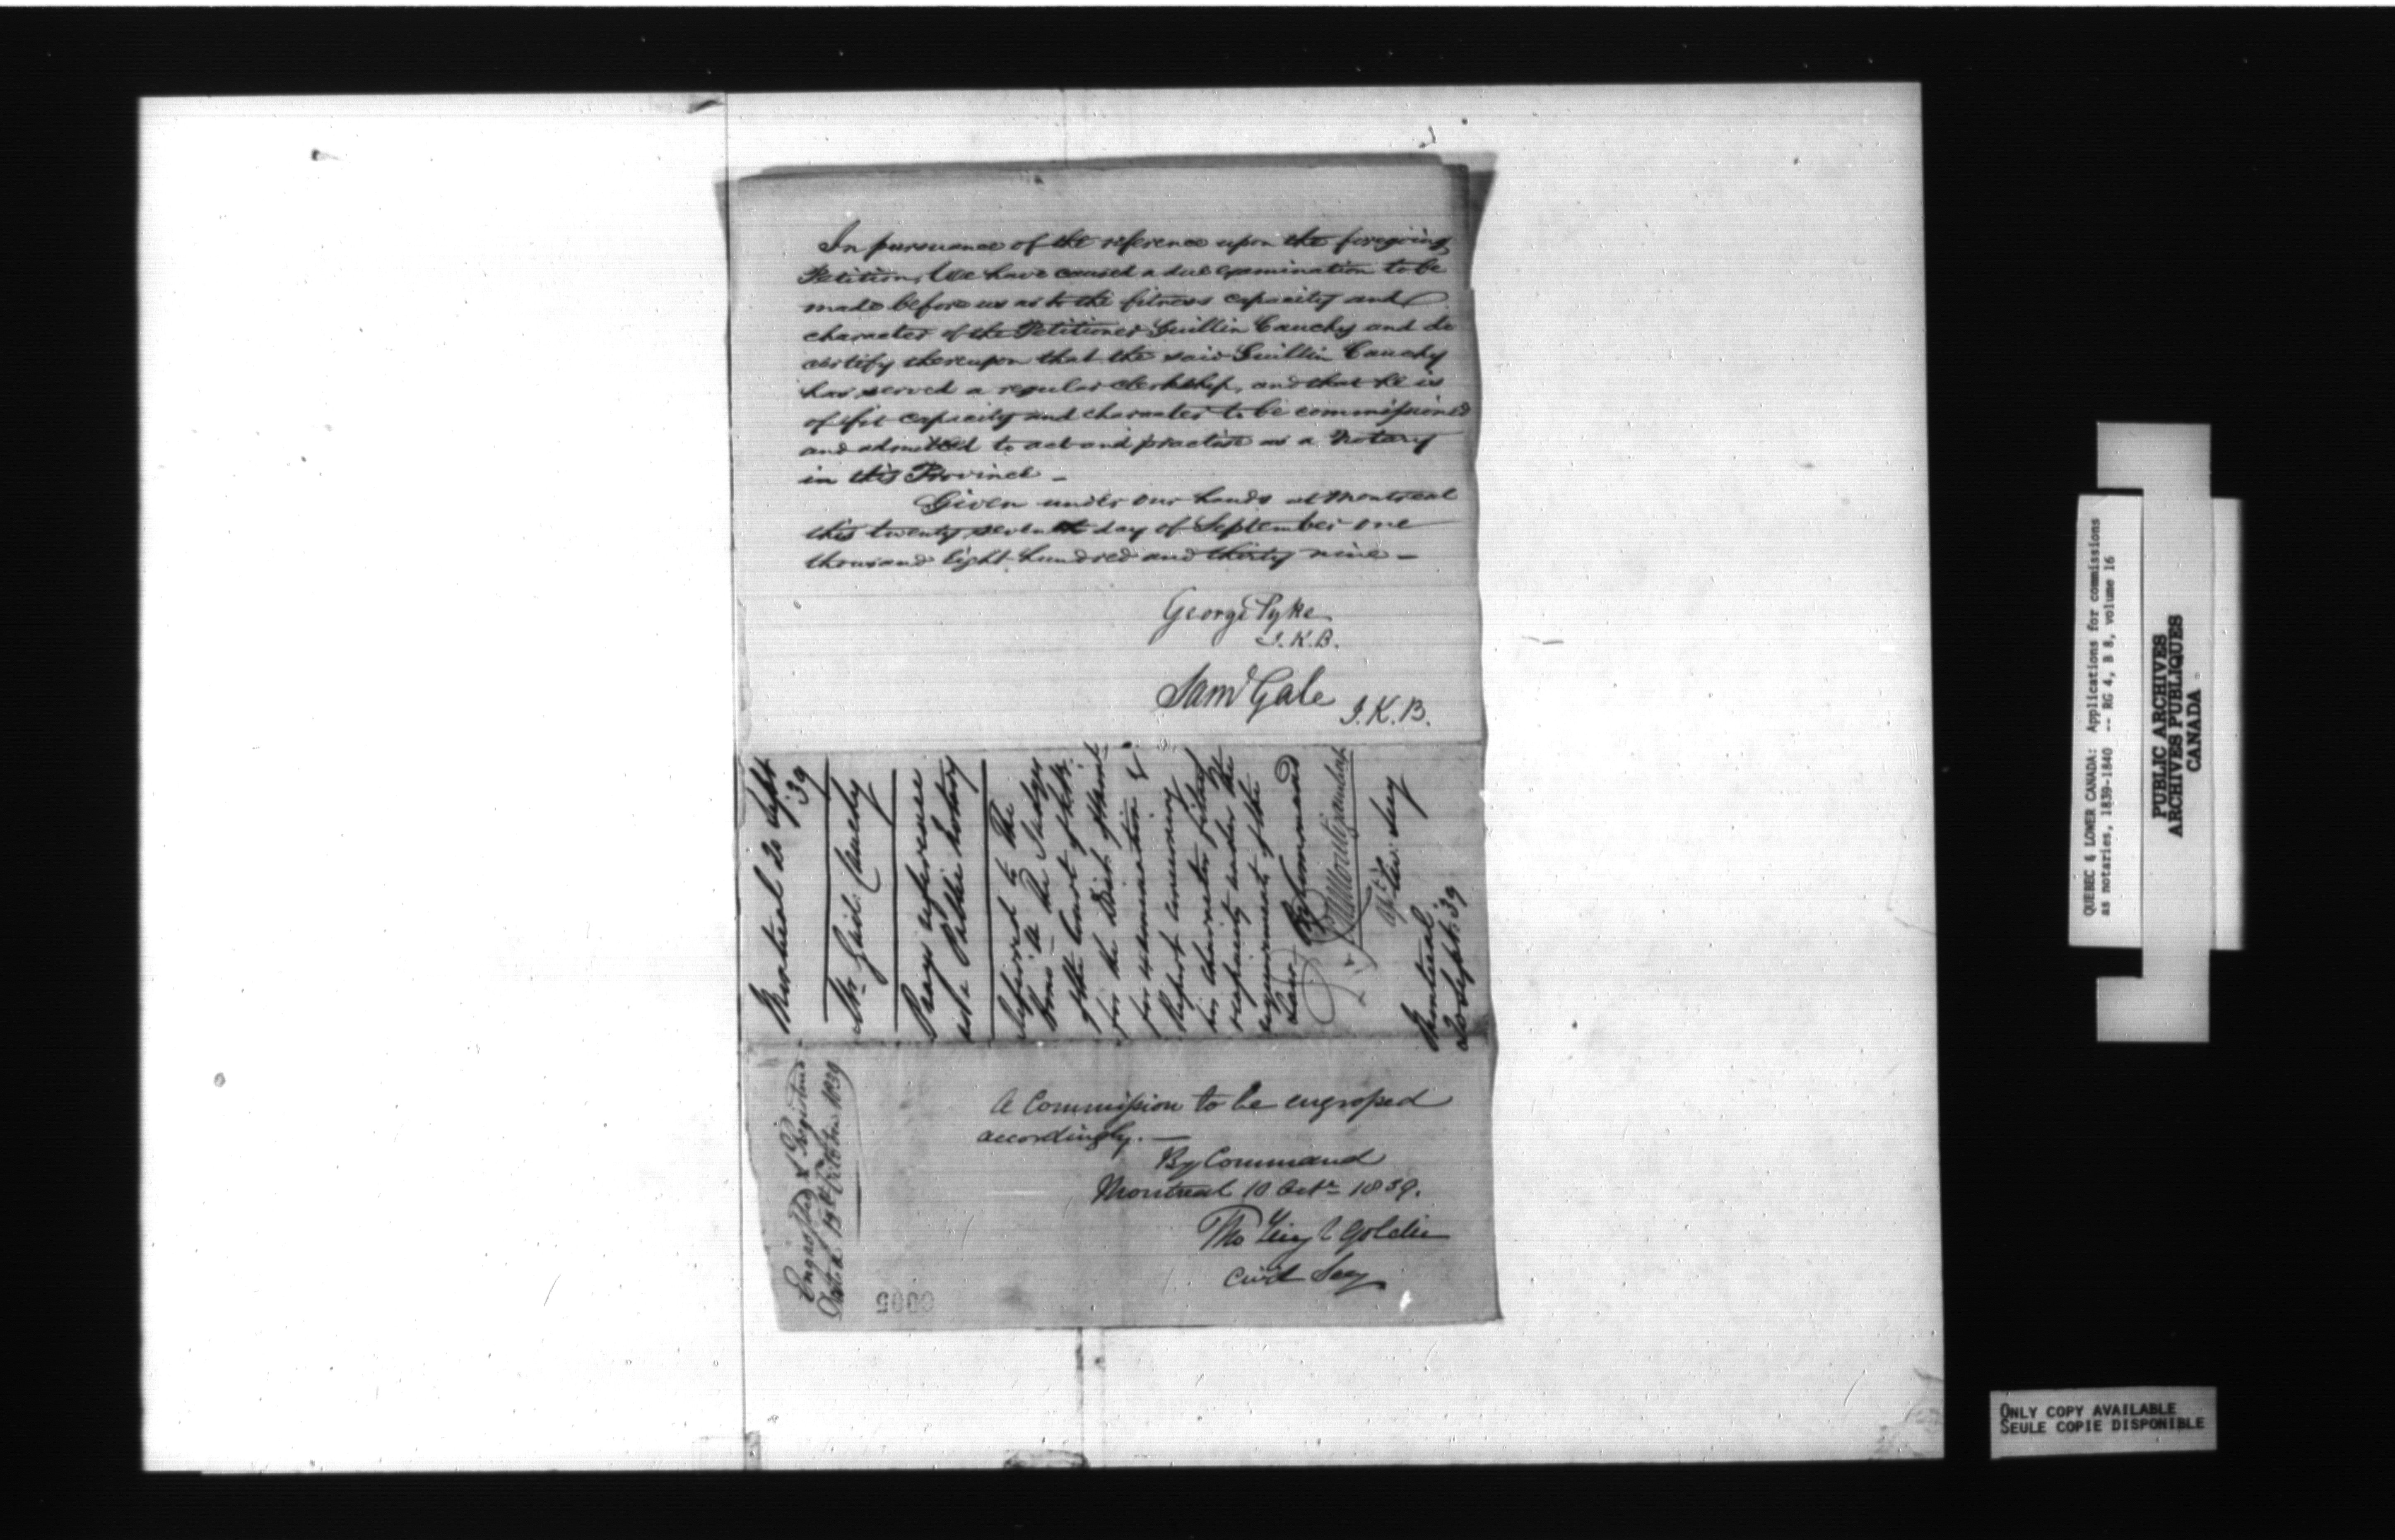 In pursuance of the reference upon the foregoing
Petition, We have caused a due examination to be
made before us as to the fitness capacity and
character of the Petitioner Guillin Cauchy and do
certify thereupon that the said Guillin Cauchy
has served a regular clerkship, and that he is
of fit capacity and character to be commissioned
and admitted to act and practise as a Notary
in this Province -
Given under our hands at Montreal
this twenty seventh day of September one
thousand eight hundred and thirty nine -
George Pyke
J.K.B.
Saml Gale
J.K.B.
Montreal 20 Sept
39
Mr. Guil: Cauchy
Prays reference
as a Public Notary
Referred to the
Honble the Judges
of the Court of K.B.
for the Dist. of Mont
for examination &
Report concerning
his character, fitness
capacity under the
requirements of the
Law.
By Command
Civ: Secy
Montreal
20 Septr. 39
Engrossed & Registered
19th October 1839
A Commission to be engrossed
accordingly. —
By Command
Montreal 10 Octr 1839.
Tho Leigh Goldie
Civil Secy
0005
QUEBEC & LOWER CANADA: Applications for commissions
as notaries, 1839-1840 -- RG 4, B 8, volume 16
PUBLIC ARCHIVES
ARCHIVES PUBLIQUES
CANADA
ONLY COPY AVAILABLE
SEULE COPIE DISPONIBLE